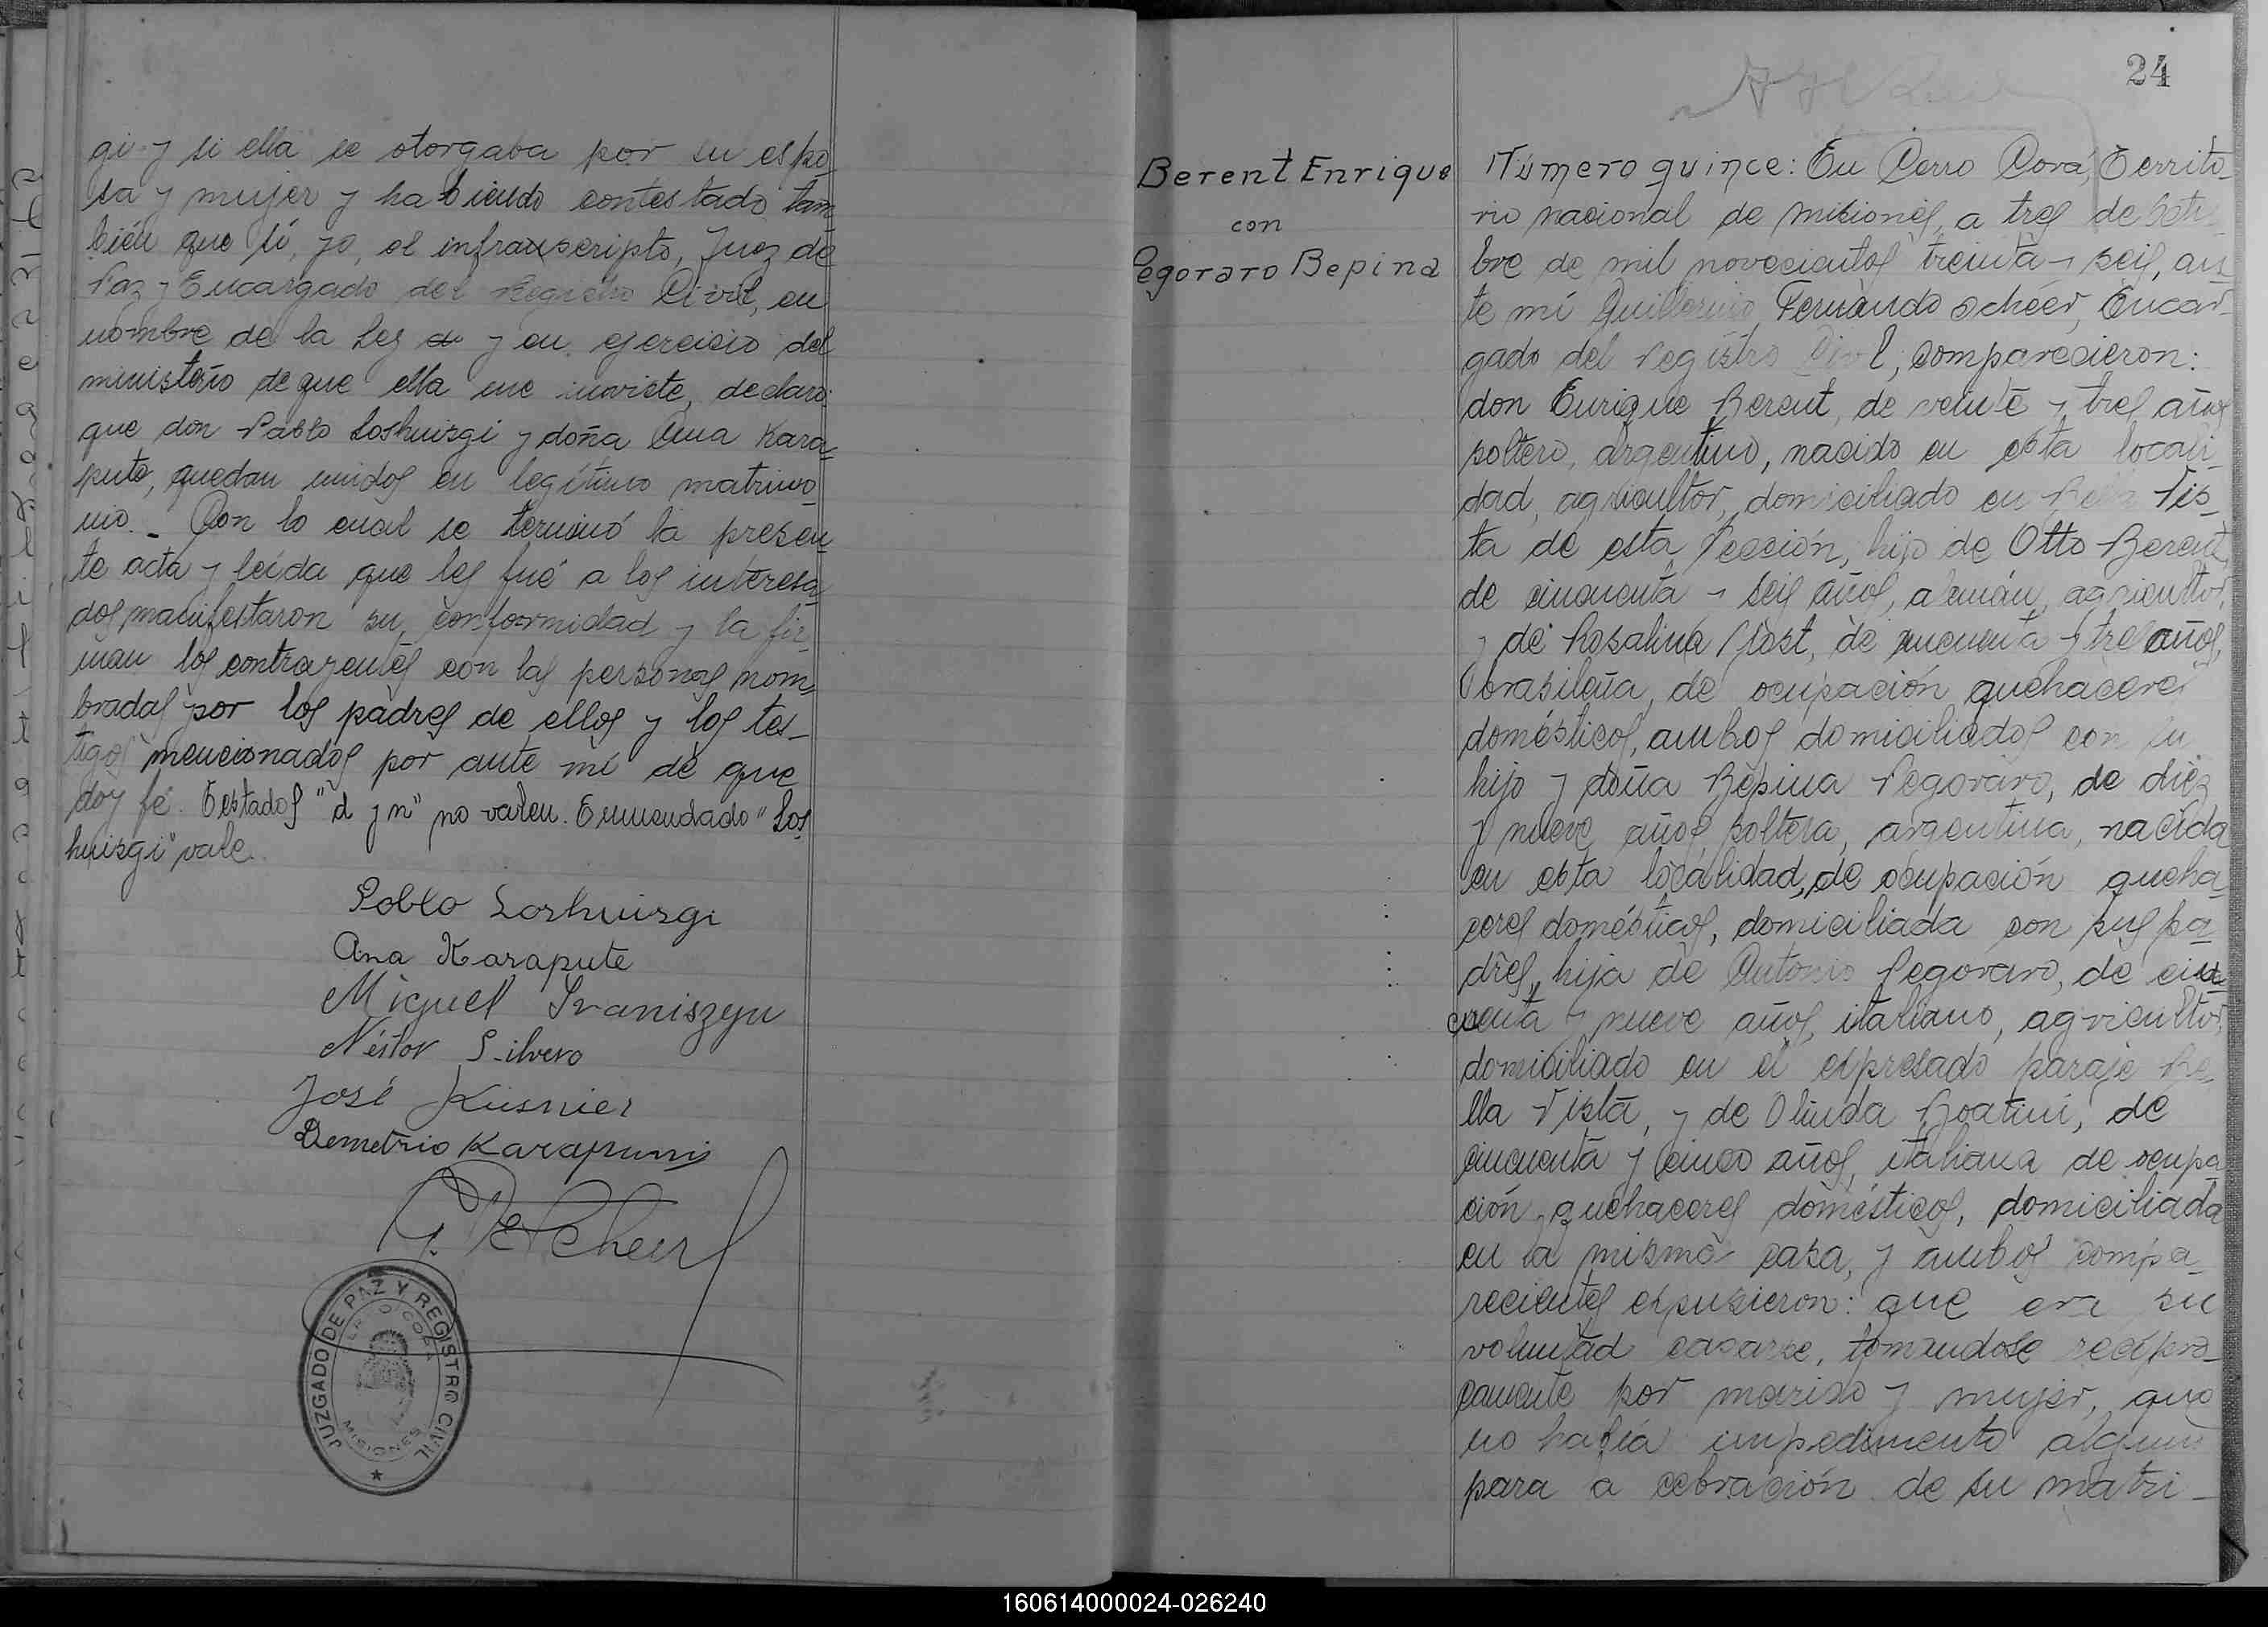 gi y si ella se otorgaba por su espo-
sa y mujer y habiendo contestado tam
bién que sí, yo, el infrascripto, Juez de
Paz y Encargado del Registro Civil, en
nombre de la Ley y en ejercicio del
ministerio de que ella me inviste, declaro:
que don Pablo Loshuisgi y doña Ana Kara-
pute, quedan unidos en legítimo matrimo-
nio._ Con lo cual se terminó la presen-
te acta y leída que les fué a los interesa-
dos manifestaron su conformidad y la fir-
man los contrayentes con las personas nom-
bradas por los padres de ellos y los tes-
tigos mencionados por ante mí de que
doy fé. Testados "d y n" no valen. Enmendado "Los
huisgi" vale.
Pablo Loshuisgi
Ana Karapute
Miguel Ivaniszyn
Néstor Silvero
José Kusnier
Demetrio
JUZGADO DE PAZ Y REGISTRO CIVIL
MISIONES
24
Berent Enrique
con
Pegoraro Bepina
Número quince: En Cerro Corá, Territo-
rio nacional de Misiones, a tres de
bre de mil novecientos treinta y seis, an
te mí Guillermo Fernando Scheer, Encar-
gado del Registro Civil, comparecieron:
don Enrique Berent, de veinte y tres años
soltero, argentino, nacido en esta locali-
dad, agricultor, domiciliado en Bella Vis-
ta de esta Sección, hijo de Otto Berent,
de cincuenta y seis años, alemán, agricultor,
y de Rosalina de cincuenta y tres años,
brasileña, de ocupación quehaceres
domésticos, ambos domiciliados con su
hijo y doña Bepina Pegoraro, de diez
y nueve años, soltera, argentina, nacida
en esta localidad, de ocupación queha-
ceres domésticos, domiciliada con sus pa-
dres, hija de Antonio Pegoraro, de cin
cuenta y nueve años, italiano, agricultor,
domiciliado en el expresado paraje Be-
lla Vista, y de Olinda Boatini, de
cincuenta y cinco años, italiana de ocupa
ción quehaceres domésticos, domiciliada
en la misma casa, y ambos compa-
recientes expusieron: que era su
voluntad casarse, tomandose recipro-
camente por marido y mujer, que
no había impedimento alguno
para a cebración de su matri-
160614000024-026240